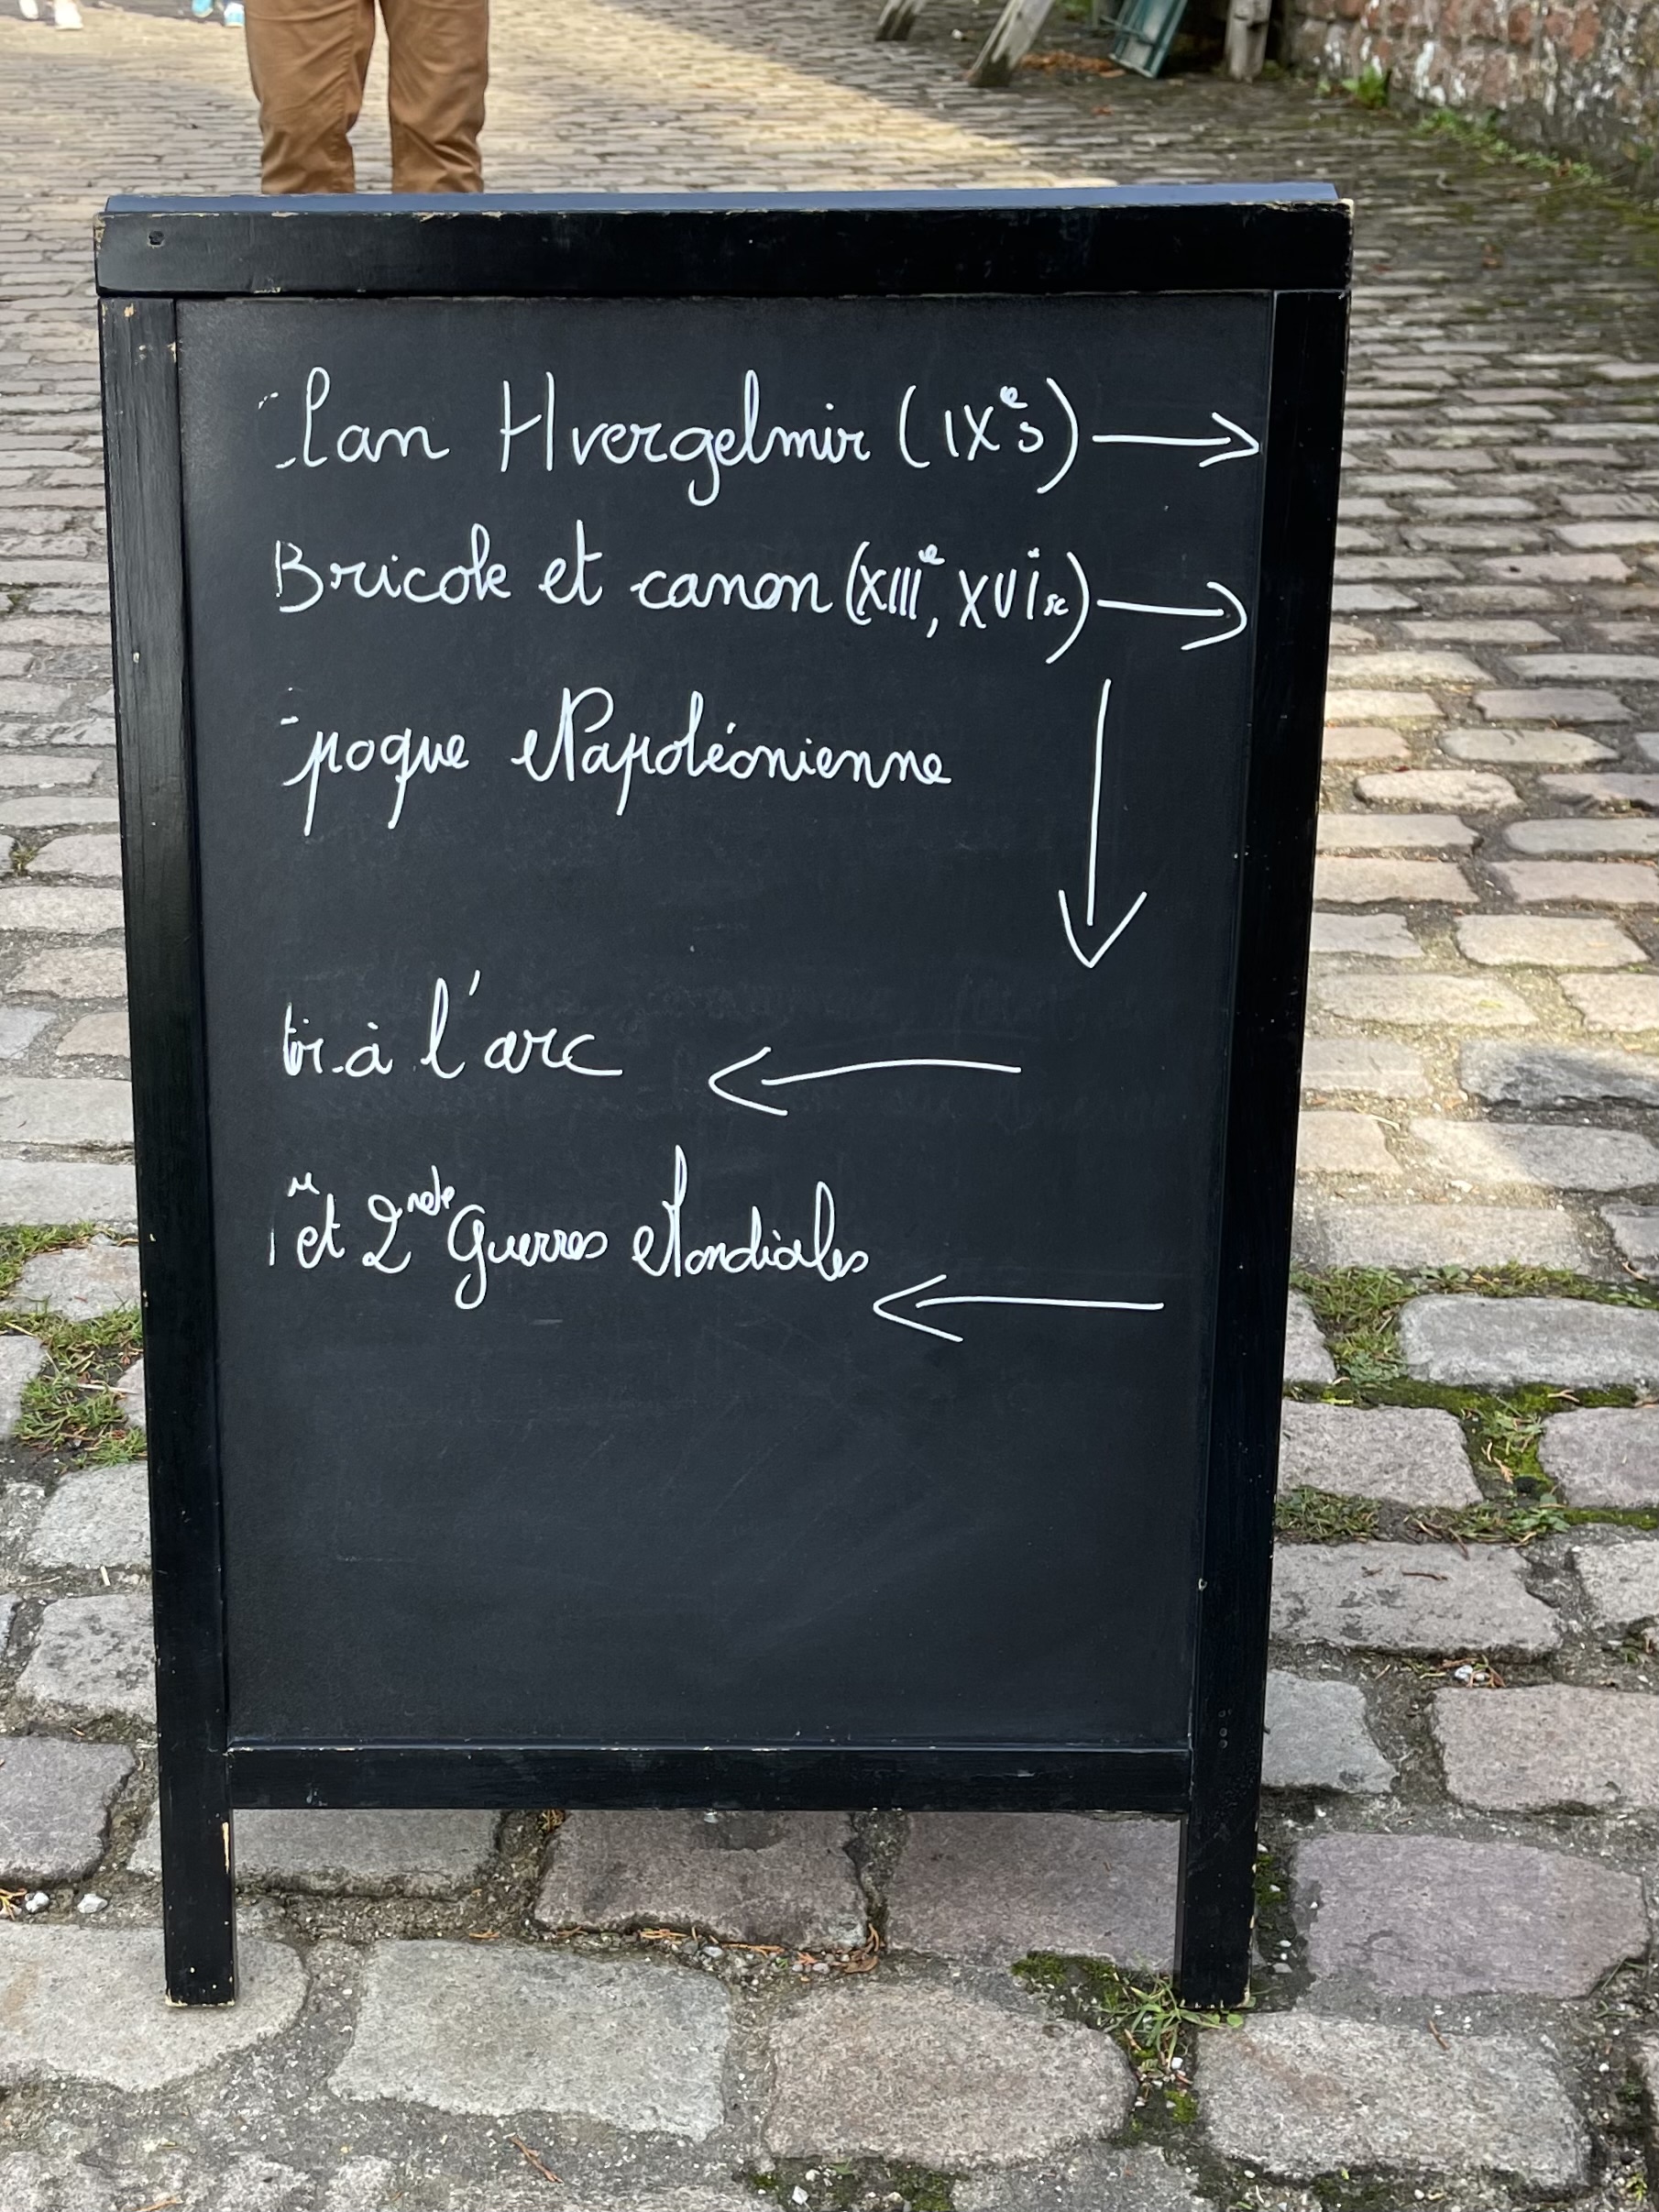 Clan Hvergelmir (IXᵉs) →
Bricole et canon (XIIIᵉ, XVIᵉ) →
poque Napoléonienne ↓
tir à l'arc ←
1 et 2 Guerres Mondiales ←